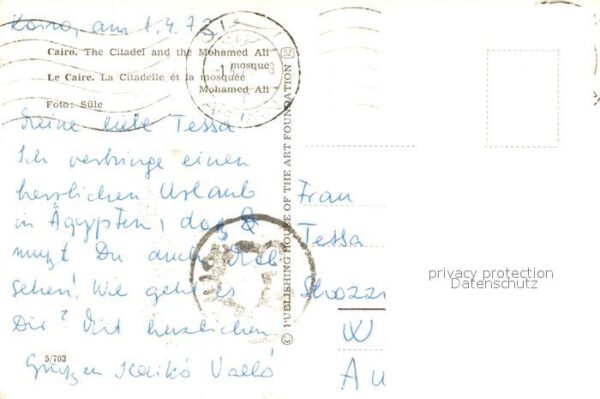 Kairo, am 1.4.73
Cairo. The Citadel and the Mohamed Ali
mosque
Le Caire. La Citadelle et la mosquée
Mohamed Ali
Foto: Süle
Meine liebe Tessa!
Ich verbringe einen
herrlichen Urlaub
in Ägypten, das
mußt Du auch
sehen! Wie geht es
Dir? Mit herzlichen
Grüßen Ildikó
5/703
© PUBLISHING HOUSE OF THE ART FOUNDATION
Frau
Tessa
Strozzi
W
Au
privacy protection
Datenschutz